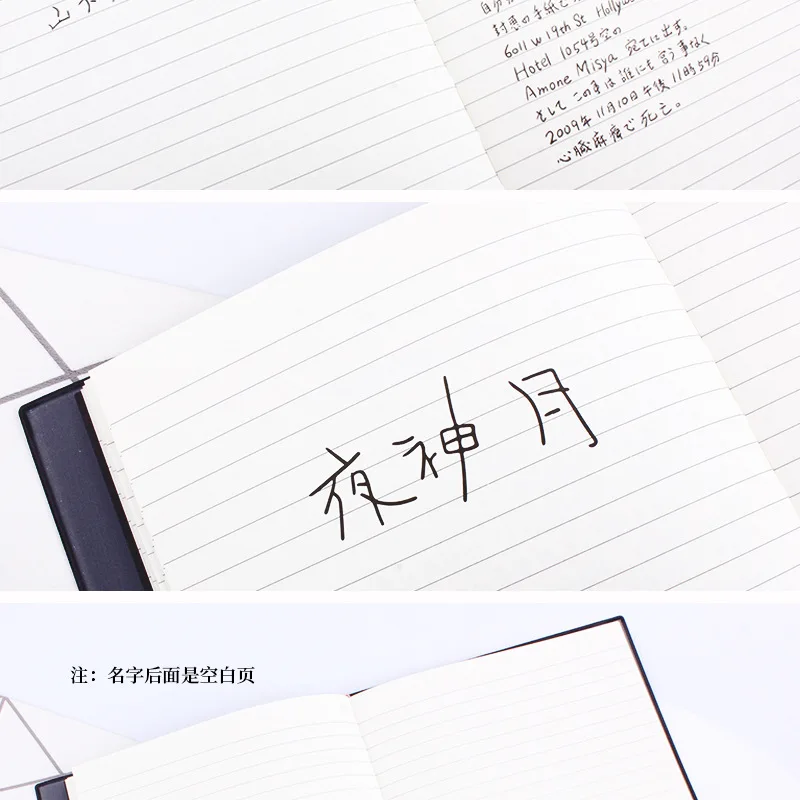 封悪の手紙で
6011 w 19th St Hollyw
Hotel 1054号室の
Amone Misya 宛てに出す。
そして この事は誰にも言う事なく
2009年 11月10日 午後 11時59分
心臓麻痺で 死亡。
夜神 月
注：名字后面是空白页